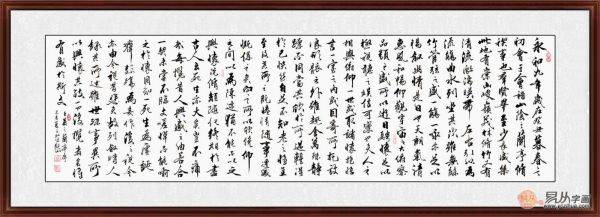 永和九年歲在癸丑暮春之
初會於會稽山陰之蘭亭脩
禊事也羣賢畢至少長咸集
此地有崇山峻嶺茂林脩竹又有
清流激湍映帶左右引以為
流觴曲水列坐其次雖無絲
竹管弦之盛一觴一詠亦足以
暢敘幽情是日也天朗氣清
惠風和暢仰觀宇宙之大俯察
品類之盛所以遊目騁懷足以
極視聽之娛信可樂也夫人之
相與俯仰一世或取諸懷抱悟
言一室之內或因寄所託放
浪形骸之外雖趣舍萬殊靜
躁不同當其欣於所遇暫得
於己快然自足不知老之將至
及其所之既倦情隨事遷感
慨係之矣向之所欣俛仰
之間以為陳迹猶不能不以之
興懷況脩短隨化終期於盡
古人云死生亦大矣豈不痛
哉每攬昔人興感之由若合
一契未嘗不臨文嗟悼不能喻
之於懷固知死生為虛誕
齊彭殤為妄作後之視今
亦由今之視昔悲夫故列敘時人
錄其所述雖世殊事異所
以興懷其致一也後之攬者亦將
有感於斯文
蘭亭序
易从字画